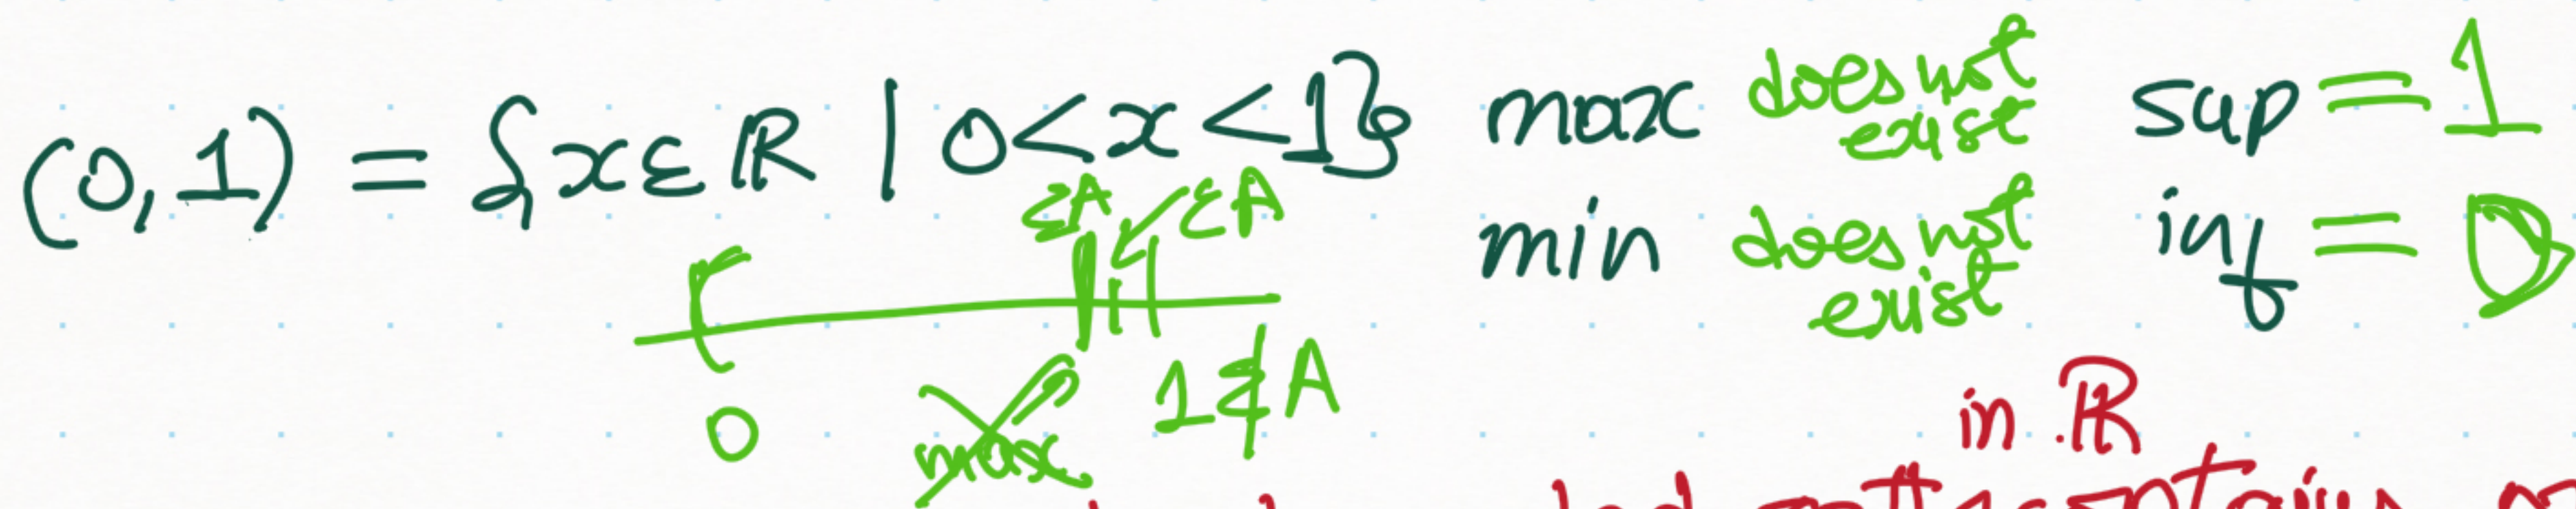 (0,1) = {x ∈ ℝ | 0 < x < 1} max does not exist sup = 1
min does not exist inf = 0
∈A ∈A
0 max 1 ∉ A
in ℝ